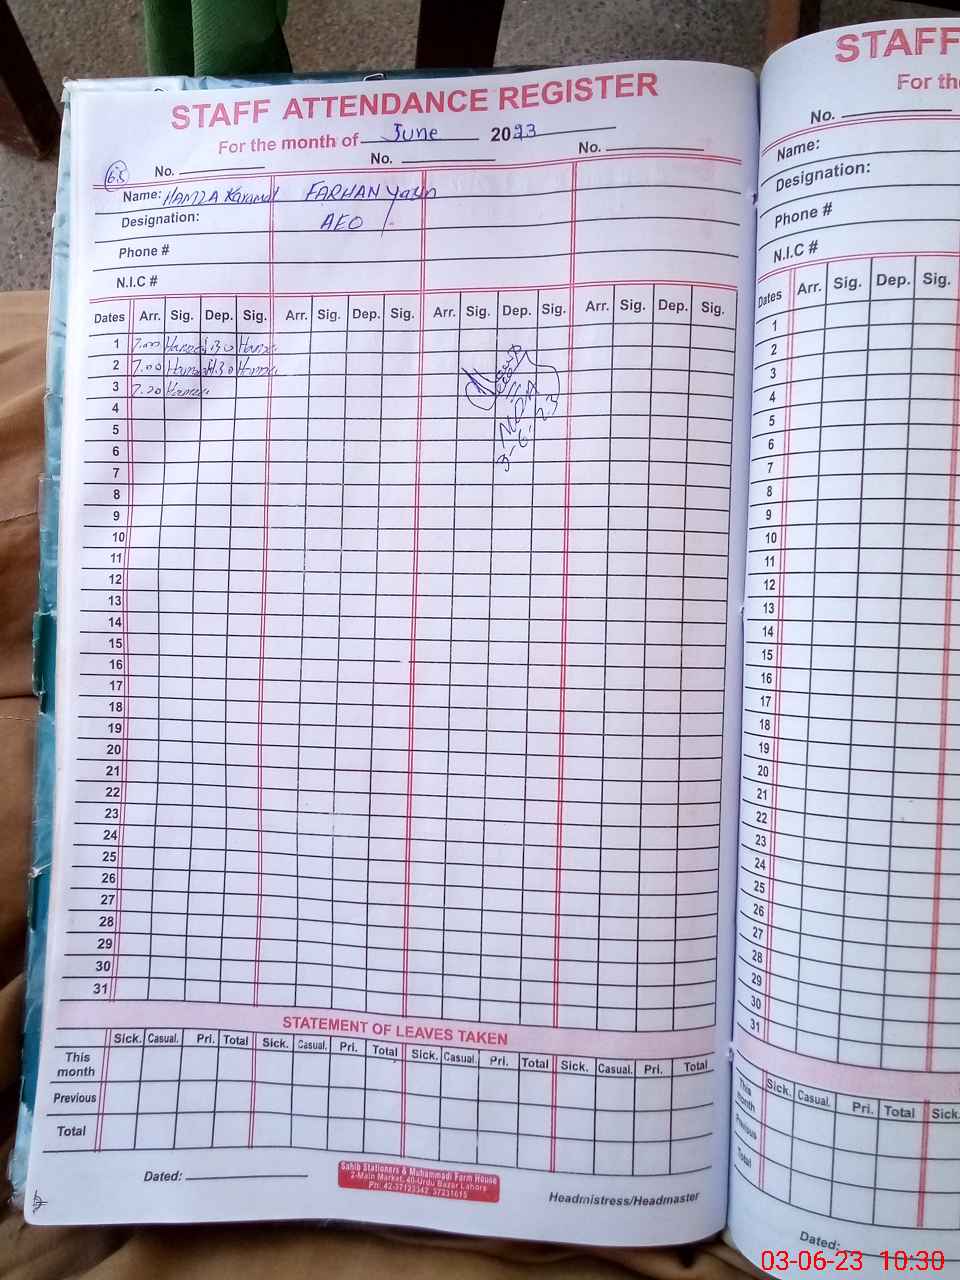 STAFF ATTENDANCE REGISTER
For the month of June 2023
No. No. No.
65
Name: HAMZA FARHAN Yasin
Designation: AEO
Phone #
N.I.C #
Dates Arr. Sig. Dep. Sig. Arr. Sig. Dep. Sig. Arr. Sig. Dep. Sig. Arr. Sig. Dep. Sig.
1 7.00 Hamza 1.30 Hamza
2 7.00 Hamza 1.30 Hamza
3 7.20 Hamza
4
5
6
7
8
9
10
11
12
13
14
15
16
17
18
19
20
21
22
23
24
25
26
27
28
29
30
31
3-6-23
STATEMENT OF LEAVES TAKEN
Sick. Casual. Pri. Total Sick. Casual. Pri. Total Sick. Casual. Pri. Total Sick. Casual. Pri. Total
This month
Previous
Total
Dated:
Sahib Stationers & Muhammadi Farm House
2-Main Market, 40-Urdu Bazar Lahore
Ph: 42-37123342, 37231615
Headmistress/Headmaster
STAFF
For th
No.
Name:
Designation:
Phone #
N.I.C #
Dates Arr. Sig. Dep. Sig.
1
2
3
4
5
6
7
8
9
10
11
12
13
14
15
16
17
18
19
20
21
22
23
24
25
26
27
28
29
30
31
Sick. Casual. Pri. Total Sick.
This month
Previous
Total
Dated:
03-06-23 10:30